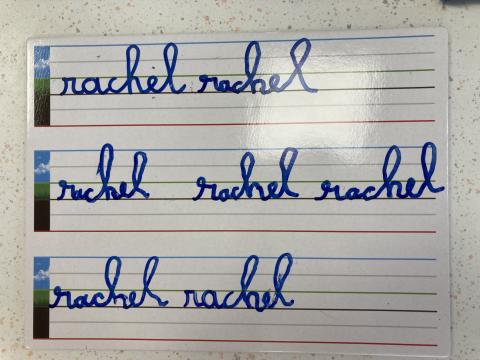 rachel rachel
rachel rachel rachel
rachel rachel